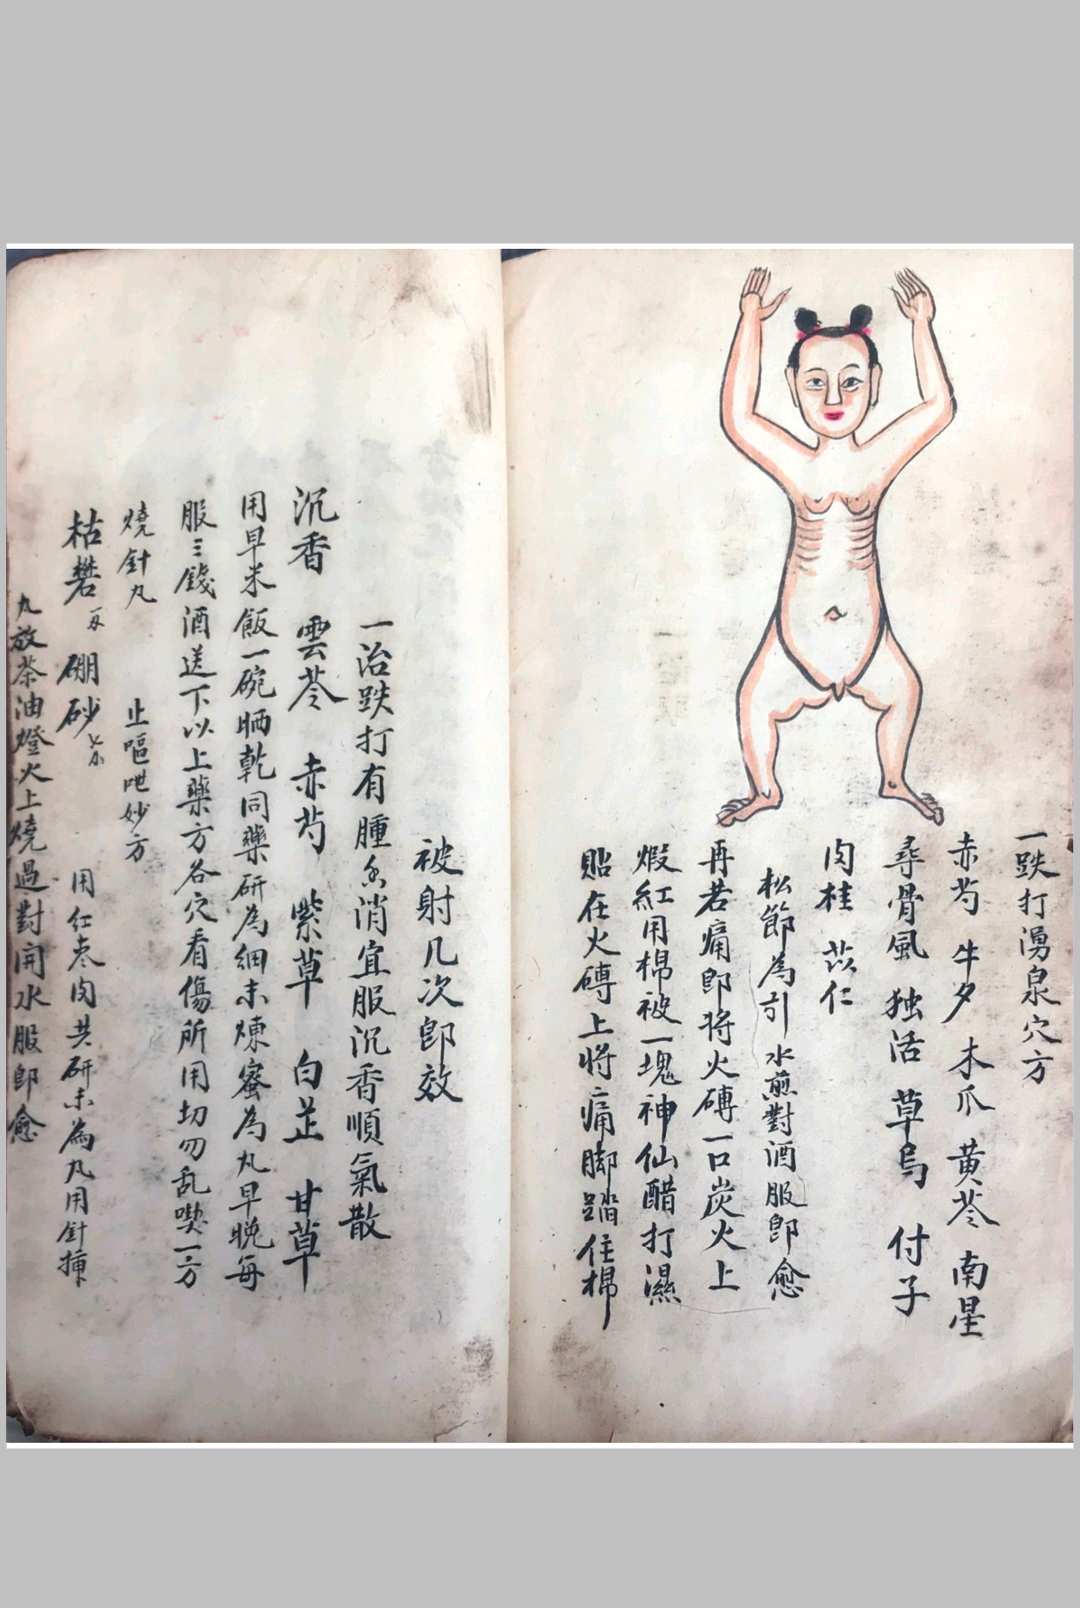 一跌打湧泉穴方
赤芍 牛夕 木爪 黄芩 南星
尋骨風 独活 草烏 付子
肉桂 苡仁
松節為引 水煎對酒服即愈
再若痛即将火磚一口炭火上
煅紅用棉被一塊神仙醋打濕
貼在火磚上将痛脚踏住棉
被射几次即效
一治跌打有腫不消宜服沉香順氣散
沉香 雲苓 赤芍 紫草 白芷 甘草
用早米飯一碗晒乾同藥研為細末煉蜜為丸早晚每
服三錢酒送下以上藥方各穴看傷所用切勿乱喫一方
燒針丸 止嘔吐妙方
枯礬 硼砂 用红枣肉共研末為丸用針挿
丸放茶油燈火上燒過對開水服即愈